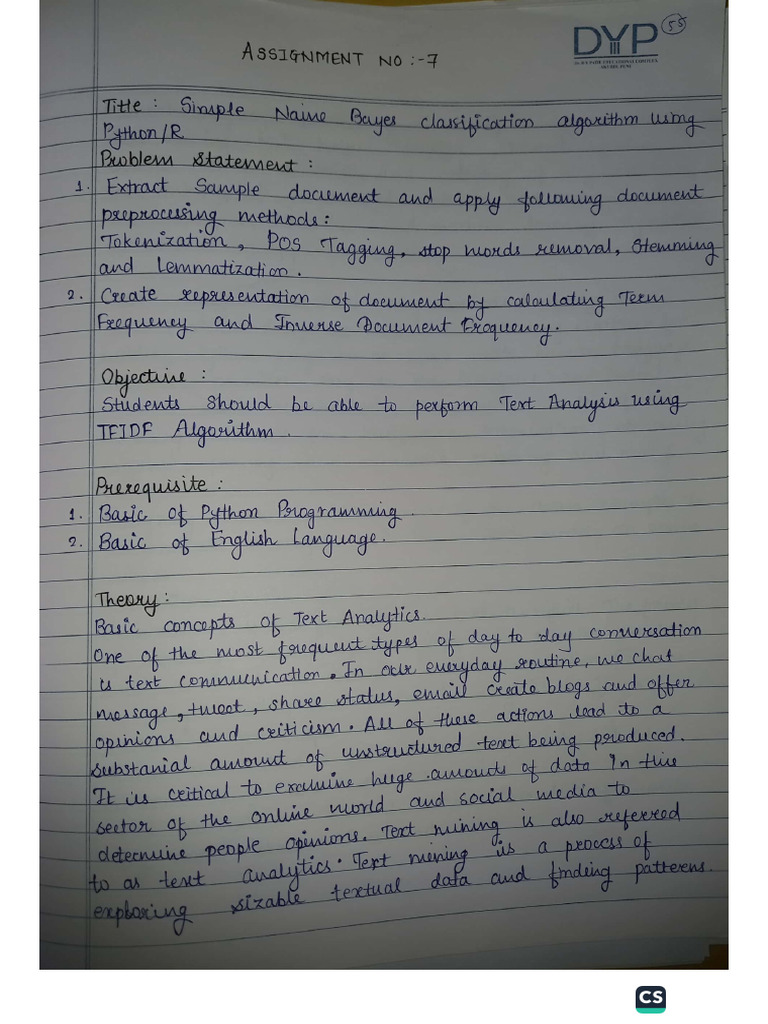 DYP
55
ASSIGNMENT NO :- 7
Title : Simple Naive Bayes classification algorithm using
Python/R
Problem Statement :
1. Extract Sample document and apply following document
preprocessing methods:
Tokenization, POS Tagging, stop words removal, Stemming
and Lemmatization.
2. Create representation of document by calculating Term
Frequency and Inverse Document Frequency.
Objective :
Students should be able to perform Text Analysis using
TFIDF Algorithm.
Prerequisite :
1. Basic of Python Programming.
2. Basic of English Language.
Theory :
Basic concepts of Text Analytics.
One of the most frequent types of day to day conversation
is text communication. In our everyday routine, we chat
message, tweet, share status, email create blogs and offer
opinions and criticism. All of these actions lead to a
substanial amount of unstructured text being produced.
It is critical to examine huge amounds of data in this
sector of the online world and social media to
determine people opinions. Text mining is also referred
to as text analytics. Text mining is a process of
exploring sizable textual data and finding patterns.
CS